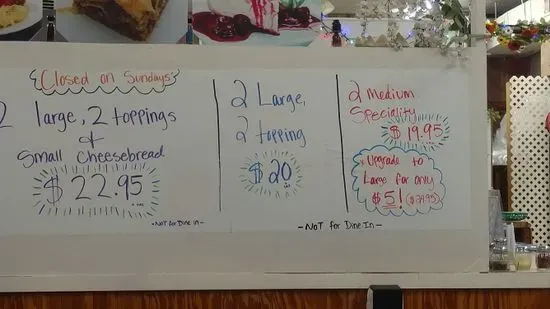 Closed on Sundays
2 large, 2 toppings
&
Small Cheesebread
$22.95
• NOT for Dine in -
2 Large,
2 topping
$20
2 Medium
Speciality
$19.95
Upgrade to
Large for only
$5! ($24.95)
- NOT for Dine In -